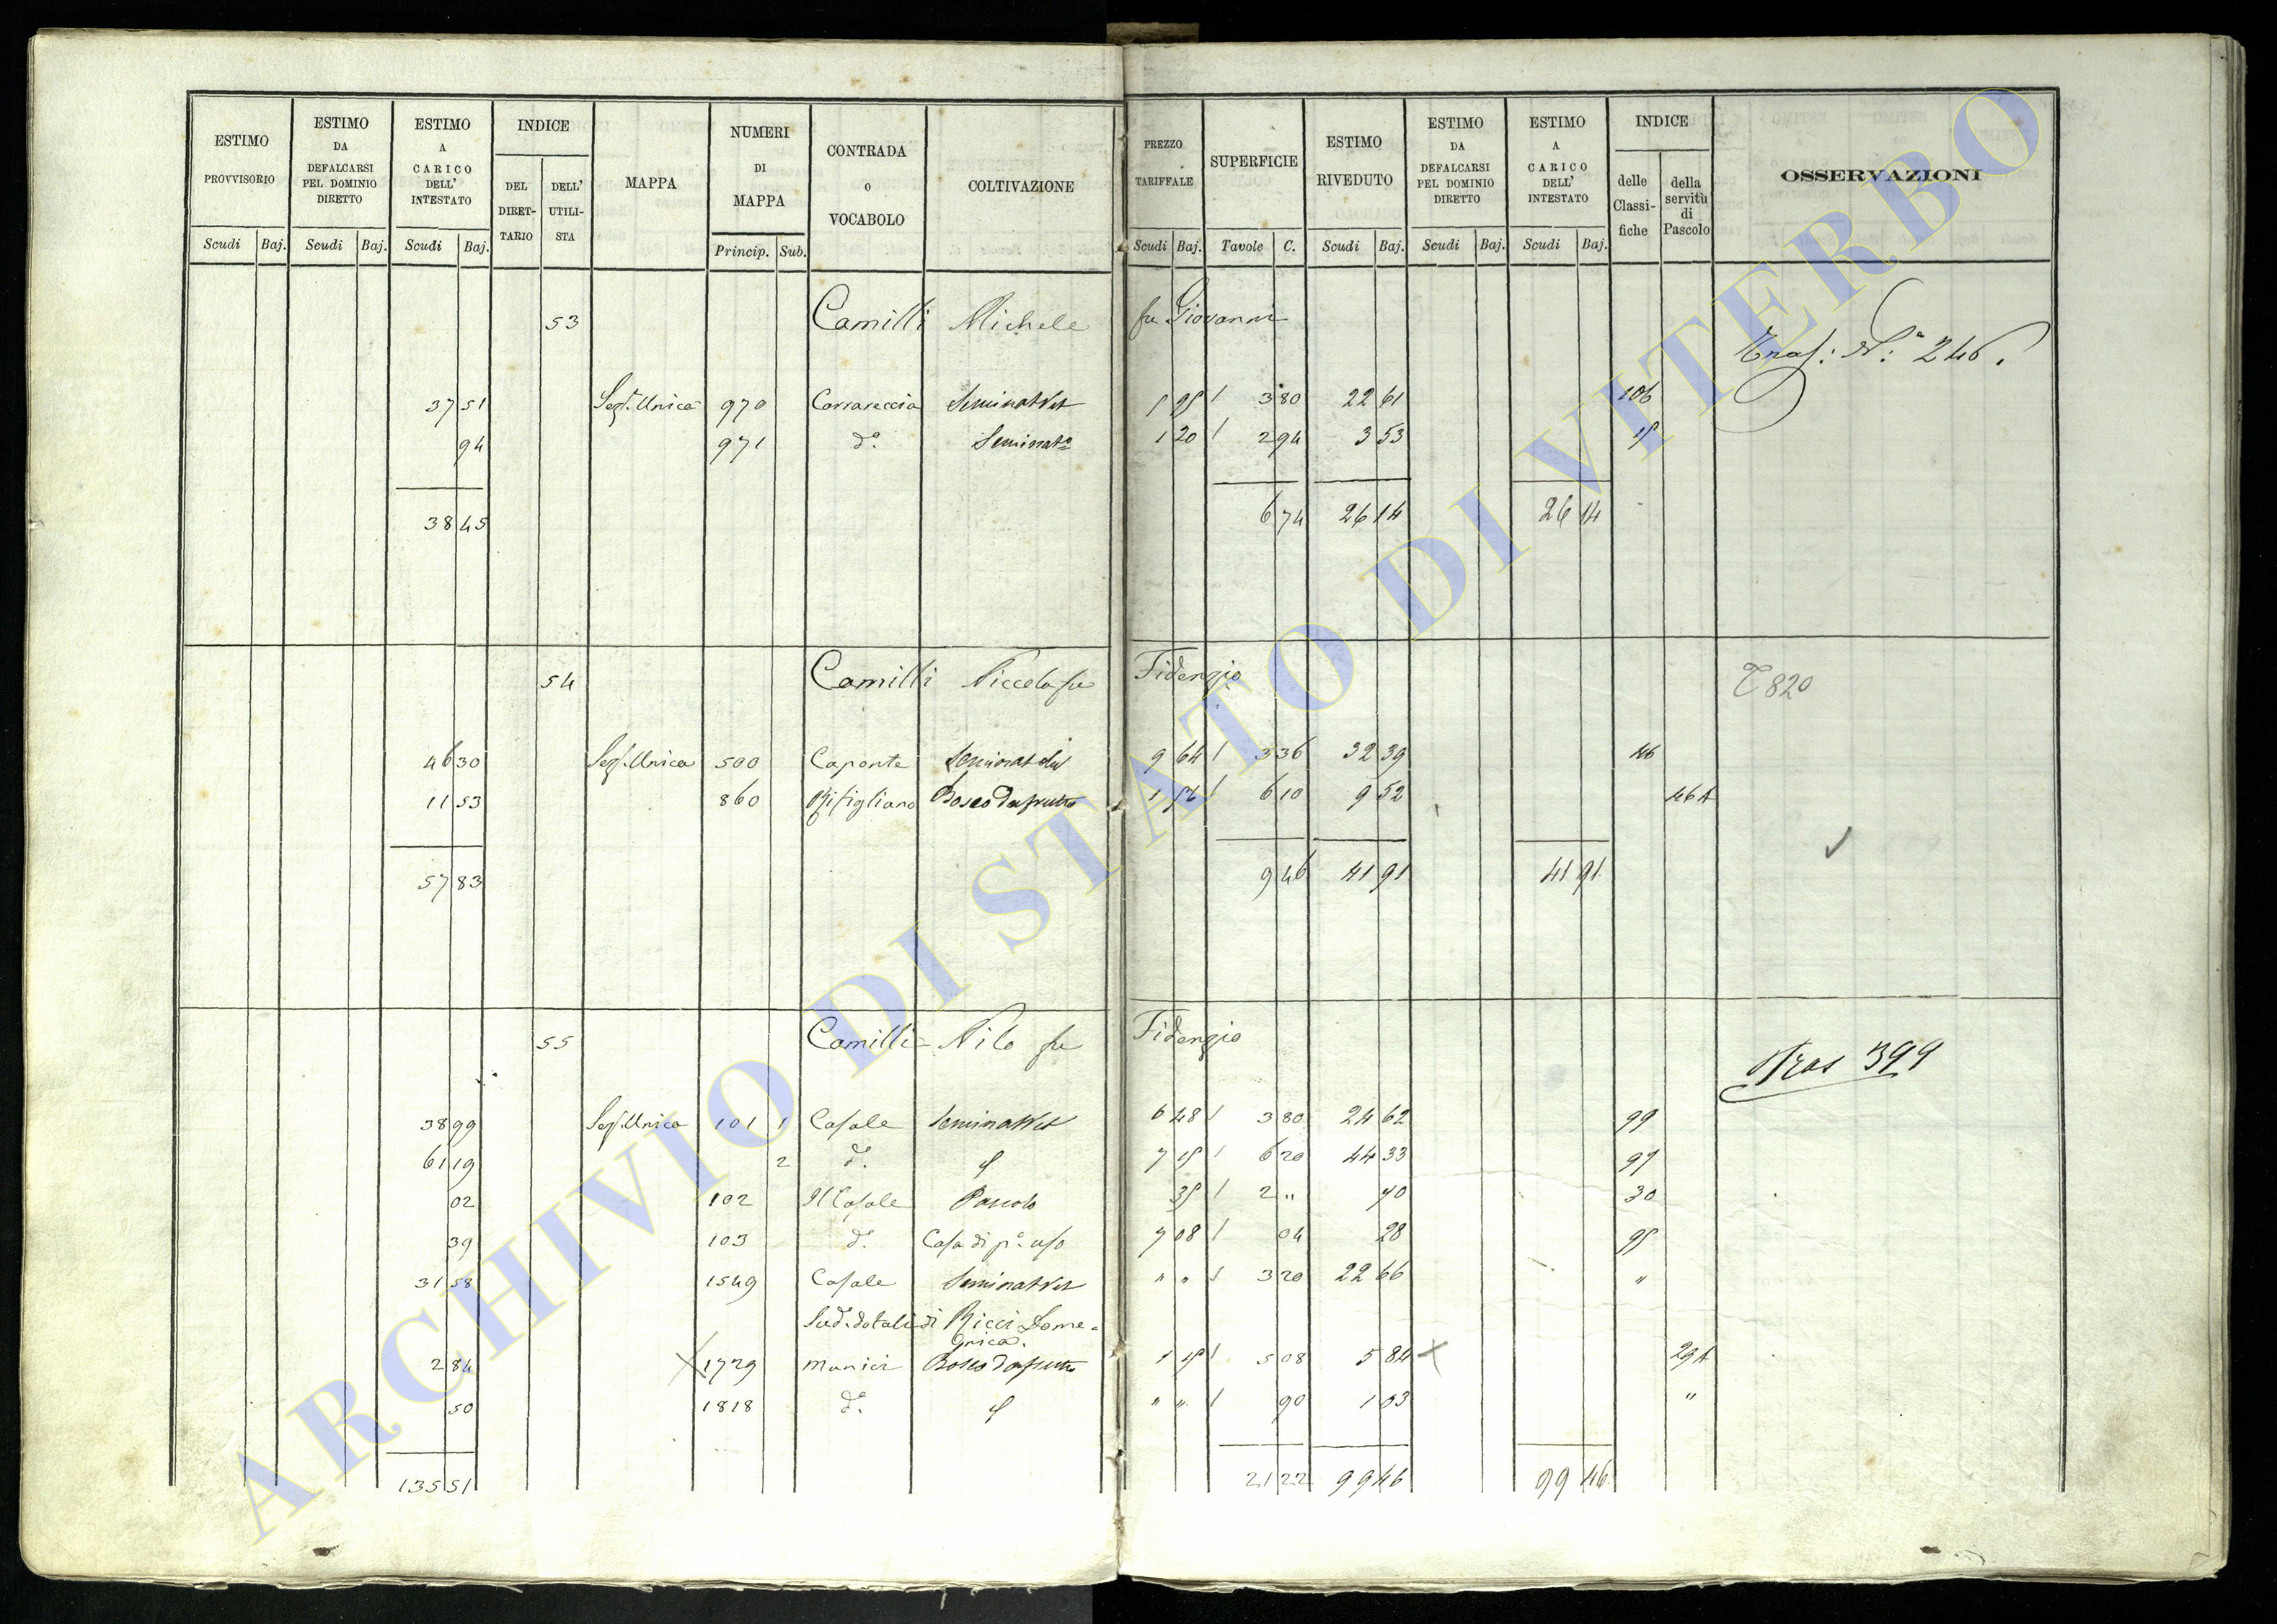 ESTIMO PROVVISORIO
ESTIMO DA DEFALCARSI PEL DOMINIO DIRETTO
ESTIMO A CARICO DELL' INTESTATO
INDICE
DEL DIRET- TARIO
DELL' UTILI- STA
MAPPA
NUMERI DI MAPPA
CONTRADA O VOCABOLO
COLTIVAZIONE
PREZZO TARIFFALE
SUPERFICIE
ESTIMO RIVEDUTO
ESTIMO DA DEFALCARSI PEL DOMINIO DIRETTO
ESTIMO A CARICO DELL' INTESTATO
INDICE
delle Classi- fiche
della servitù di Pascolo
OSSERVAZIONI
Scudi Baj. Scudi Baj. Scudi Baj. Princip. Sub. Scudi Baj. Tavole C. Scudi Baj. Scudi Baj. Scudi Baj.
53 Camilli Michele fu Giovanni
Tras: N: 246.
37 51 Sez. Unica 970 Carrareccia Seminat Vit 3 80 22 61 106
94 971 d° Seminat° 1 20 2 94 3 53 15
38 45 6 74 26 14 26 14
54 Camilli Niccola fu Fidenzio
T 820
46 30 Sez. Unica 500 Caponte 9 64 3 36 32 39 46
11 53 860 Rifigliano Bosco da frutto 1 56 6 10 9 52 46 A
57 83 9 46 41 91 41 91
55 Camilli Nilo fu Fidenzio
Tras 399
38 99 Sez. Unica 101 1 Casale Seminat Vit 6 48 3 80 24 62 99
61 19 2 d° 7 15 6 20 44 33 97
02 102 Il Casale Pascolo 35 2 " 70 30
39 103 d° Casa di p° uso 7 08 04 28 95
31 58 1549 Casale Seminat Vit " " 3 20 22 66 "
Sud° dotali di Ricci Dome-
nica.
2 84 1729 Manici Bosco da frutto 1 15 5 08 5 84 29 A
50 1818 d° " " 90 1 03 "
135 51 21 22 99 46 99 46
ARCHIVIO DI STATO DI VITERBO